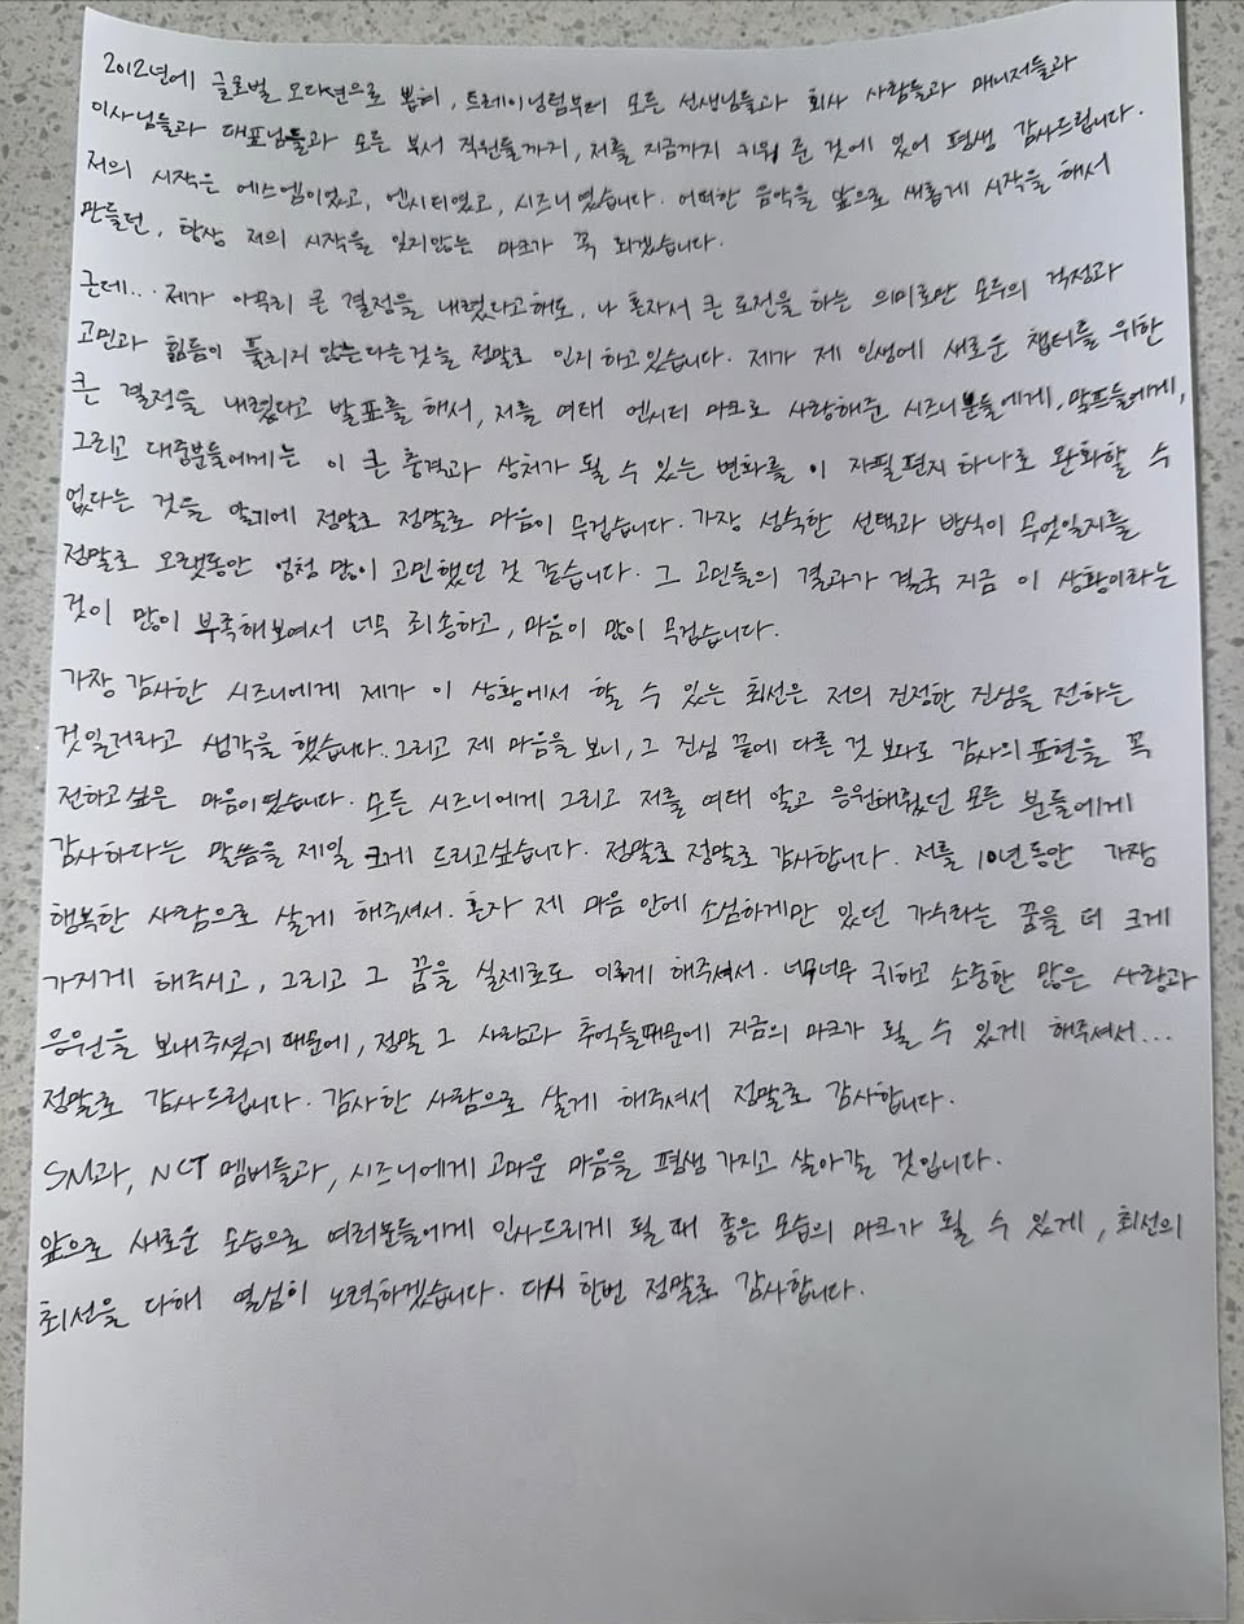 2012년에 글로벌 오디션으로 뽑혀, 트레이닝팀부터 모든 선생님들과 회사 사람들과 매니저들과
이사님들과 대표님들과 모든 부서 직원들까지, 저를 지금까지 키워 준 것에 있어 평생 감사드립니다.
저의 시작은 에스엠이었고, 엔시티였고, 시즈니였습니다. 어떠한 음악을 앞으로 새롭게 시작을 해서
만들던, 항상 저의 시작을 잊지않는 마크가 꼭 되겠습니다.
근데... 제가 아무리 큰 결정을 내렸다고해도, 나 혼자서 큰 도전을 하는 의미로만 모두의 걱정과
고민과 힘듦이 풀리지 않는다는것을 정말로 인지 하고있습니다. 제가 제 인생에 새로운 챕터를 위한
큰 결정을 내렸다고 발표를 해서, 저를 여태 엔시티 마크로 사랑해준 시즈니분들에게, 말프들에게,
그리고 대중분들에게는 이 큰 충격과 상처가 될 수 있는 변화를 이 자필편지 하나로 완화할 수
없다는 것을 알기에 정말로 정말로 마음이 무겁습니다. 가장 성숙한 선택과 방식이 무엇일지를
정말로 오랫동안 엄청 많이 고민했던 것 같습니다. 그 고민들의 결과가 결국 지금 이 상황이라는
것이 많이 부족해보여서 너무 죄송하고, 마음이 많이 무겁습니다.
가장 감사한 시즈니에게 제가 이 상황에서 할 수 있는 최선은 저의 진정한 진심을 전하는
것일거라고 생각을 했습니다. 그리고 제 마음을 보니, 그 진심 끝에 다른 것 보다도 감사의 표현을 꼭
전하고싶은 마음이였습니다. 모든 시즈니에게 그리고 저를 여태 알고 응원해줬던 모든 분들에게
감사하다는 말씀을 제일 크게 드리고싶습니다. 정말로 정말로 감사합니다. 저를 10년동안 가장
행복한 사람으로 살게 해주셔서. 혼자 제 마음 안에 소심하게만 있던 가수라는 꿈을 더 크게
가지게 해주시고, 그리고 그 꿈을 실제로도 이루게 해주셔서. 너무너무 귀하고 소중한 많은 사랑과
응원을 보내주셨기 때문에, 정말 그 사랑과 추억들때문에 지금의 마크가 될 수 있게 해주셔서...
정말로 감사드립니다. 감사한 사람으로 살게 해주셔서 정말로 감사합니다.
SM과, NCT 멤버들과, 시즈니에게 고마운 마음을 평생 가지고 살아갈 것입니다.
앞으로 새로운 모습으로 여러분들에게 인사드리게 될 때 좋은 모습의 마크가 될 수 있게, 최선의
최선을 다해 열심히 노력하겠습니다. 다시 한번 정말로 감사합니다.